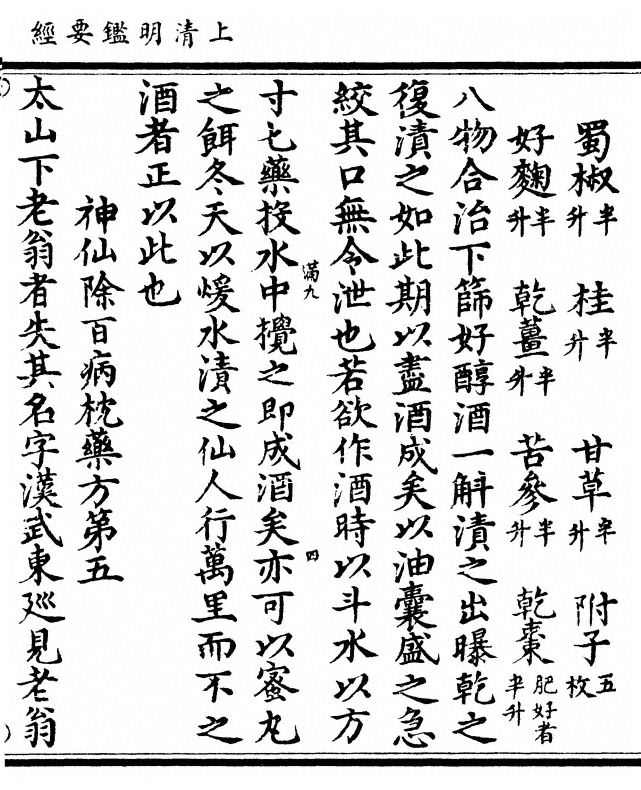 上清明鑑要經
蜀椒半升 桂半升 甘草半升 附子五枚
好麴半升 乾薑半升 苦參半升 乾棗肥好者半升
八物合治下篩好醇酒一斛漬之出曝乾之
復漬之如此期以盡酒成矣以油囊盛之急
絞其口無令泄也若欲作酒時以斗水以方
滿九 四
寸匕藥投水中攪之即成酒矣亦可以蜜丸
之餌冬天以煖水漬之仙人行萬里而不之
酒者正以此也
神仙除百病枕藥方第五
太山下老翁者失其名字漢武東廵見老翁